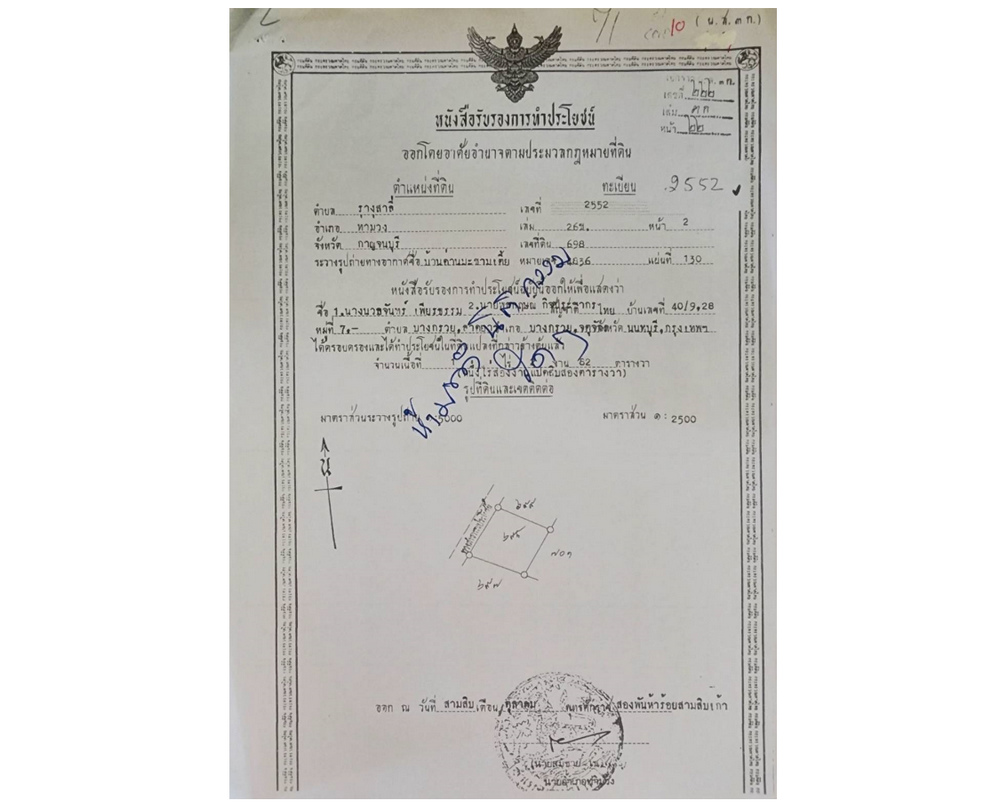 (น.ส.๓ ก.)
10
เลขที่ ๒๒๒
เล่ม ๓ก
หน้า ๒๒
หนังสือรับรองการทำประโยชน์
ออกโดยอาศัยอำนาจตามประมวลกฎหมายที่ดิน
ตำแหน่งที่ดิน ทะเบียน 2552
ตำบล รางสาลี่ เลขที่ 2552
อำเภอ ท่ามวง เล่ม 26ข. หน้า 2
จังหวัด กาญจนบุรี เลขที่ดิน 698
ระวางรูปถ่ายทางอากาศชื่อ บ้านด่านมะขามเตี้ย หมายเลข แผ่นที่ 130
หนังสือรับรองการทำประโยชน์ฉบับนี้ออกให้เพื่อแสดงว่า
ชื่อ 1.นางนวลจันทร์ เพียรธรรม 2.นาย ไทย บ้านเลขที่ 40/9,28
หมู่ที่ 7,- ตำบล บางกรวย, อำเภอ บางกรวย, จังหวัด นนทบุรี,กรุงเทพฯ
ได้ครอบครองและได้ทำประโยชน์ในที่ดินแปลงที่กล่าวข้างต้นแล้ว
จำนวนเนื้อที่ ไร่ งาน 82 ตารางวา
(หนึ่งไร่สองงานแปดสิบสองตารางวา)
รูปที่ดินและเขตติดต่อ
มาตราส่วนระวางรูปถ่าย 1:5000 มาตราส่วน ๑ : 2500
น
๖๙๙
๖๙๘
๗๐๑
๖๙๗
ออก ณ วันที่ สามสิบ เดือน ตุลาคม พุทธศักราช สองพันห้าร้อยสามสิบเก้า
นายอำเภอท่าม่วง